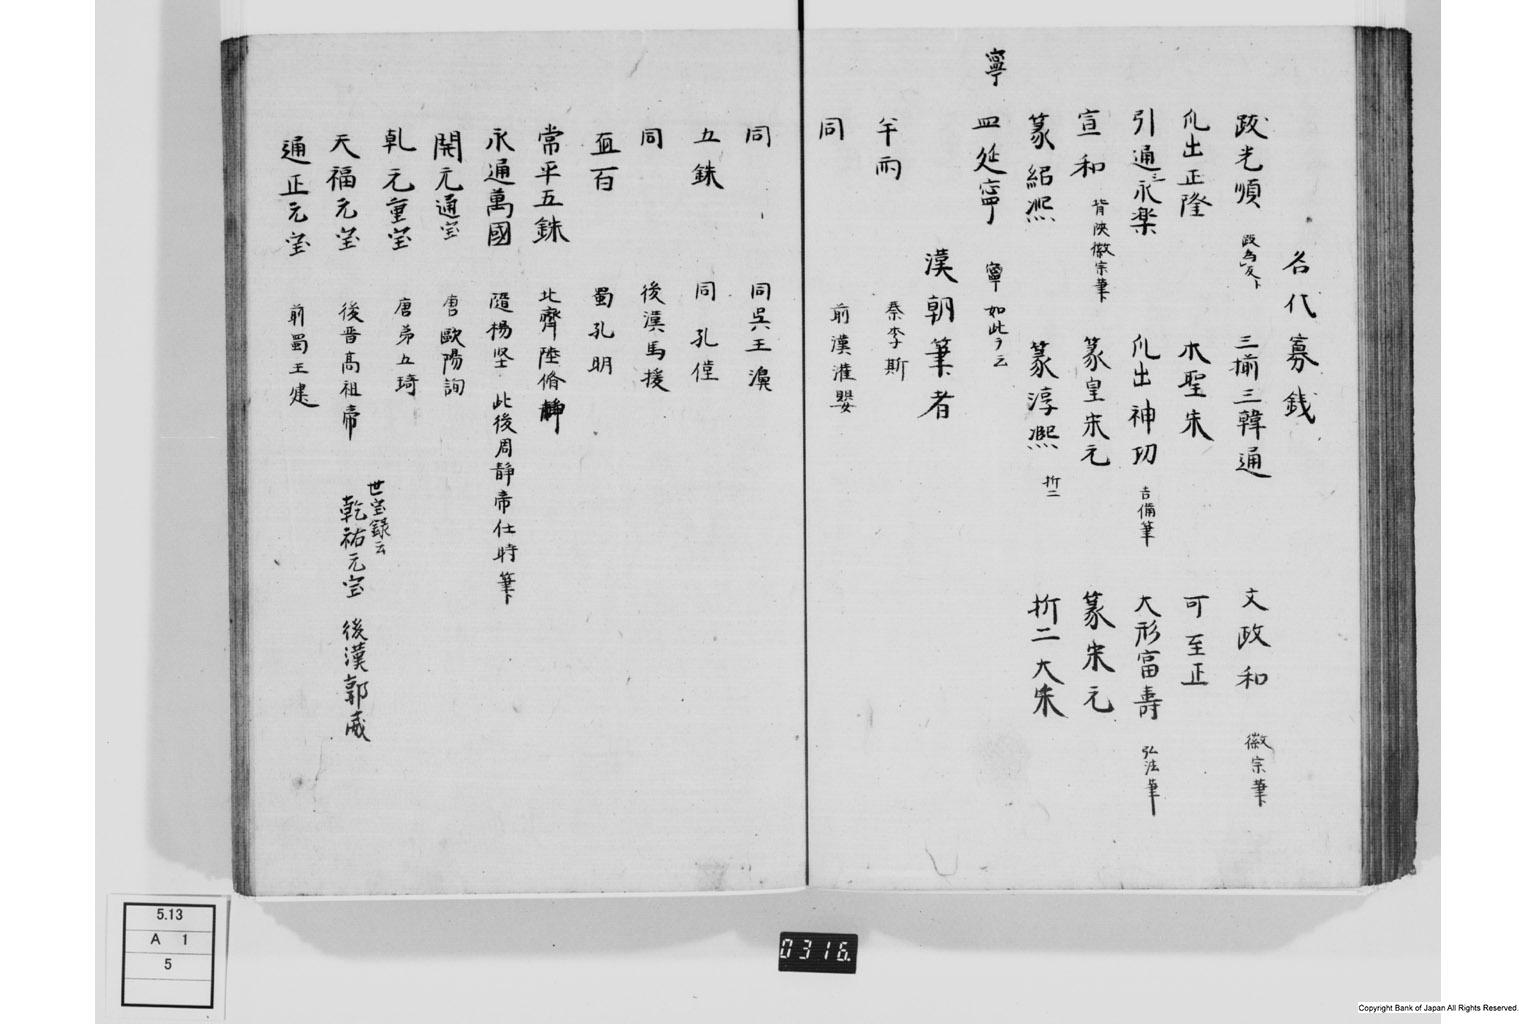 名代寡銭
跛光順 跛為友ト 三揃三韓通 文政和 徽宗筆
爪出正隆 木聖宋 可至正
引通ニ永楽 爪出神功 吉備筆 大形富壽 弘法筆
宣和 背陝徽宗筆 篆皇宋元 篆宋元
篆紹熈 篆淳熈 折二 折二大宋
寧 皿延寧 寧如此ヲ云
漢朝筆者
半両 秦李斯
同 前漢灌嬰
同 同呉王濞
五銖 同孔僅
同 後漢馬援
直百 蜀孔明
常平五銖 北齊陸脩静
永通萬國 隨楊堅 此後周静帝仕時筆ト
開元通宝 唐歐陽詢
乹元重宝 唐第五琦
天福元宝 後晋髙祖帝 世宝録云 乾祐元宝 後漢郭威
通正元宝 前蜀王建
5.13
A 1
5
0316.
Copyright Bank of Japan All Rights Reserved.